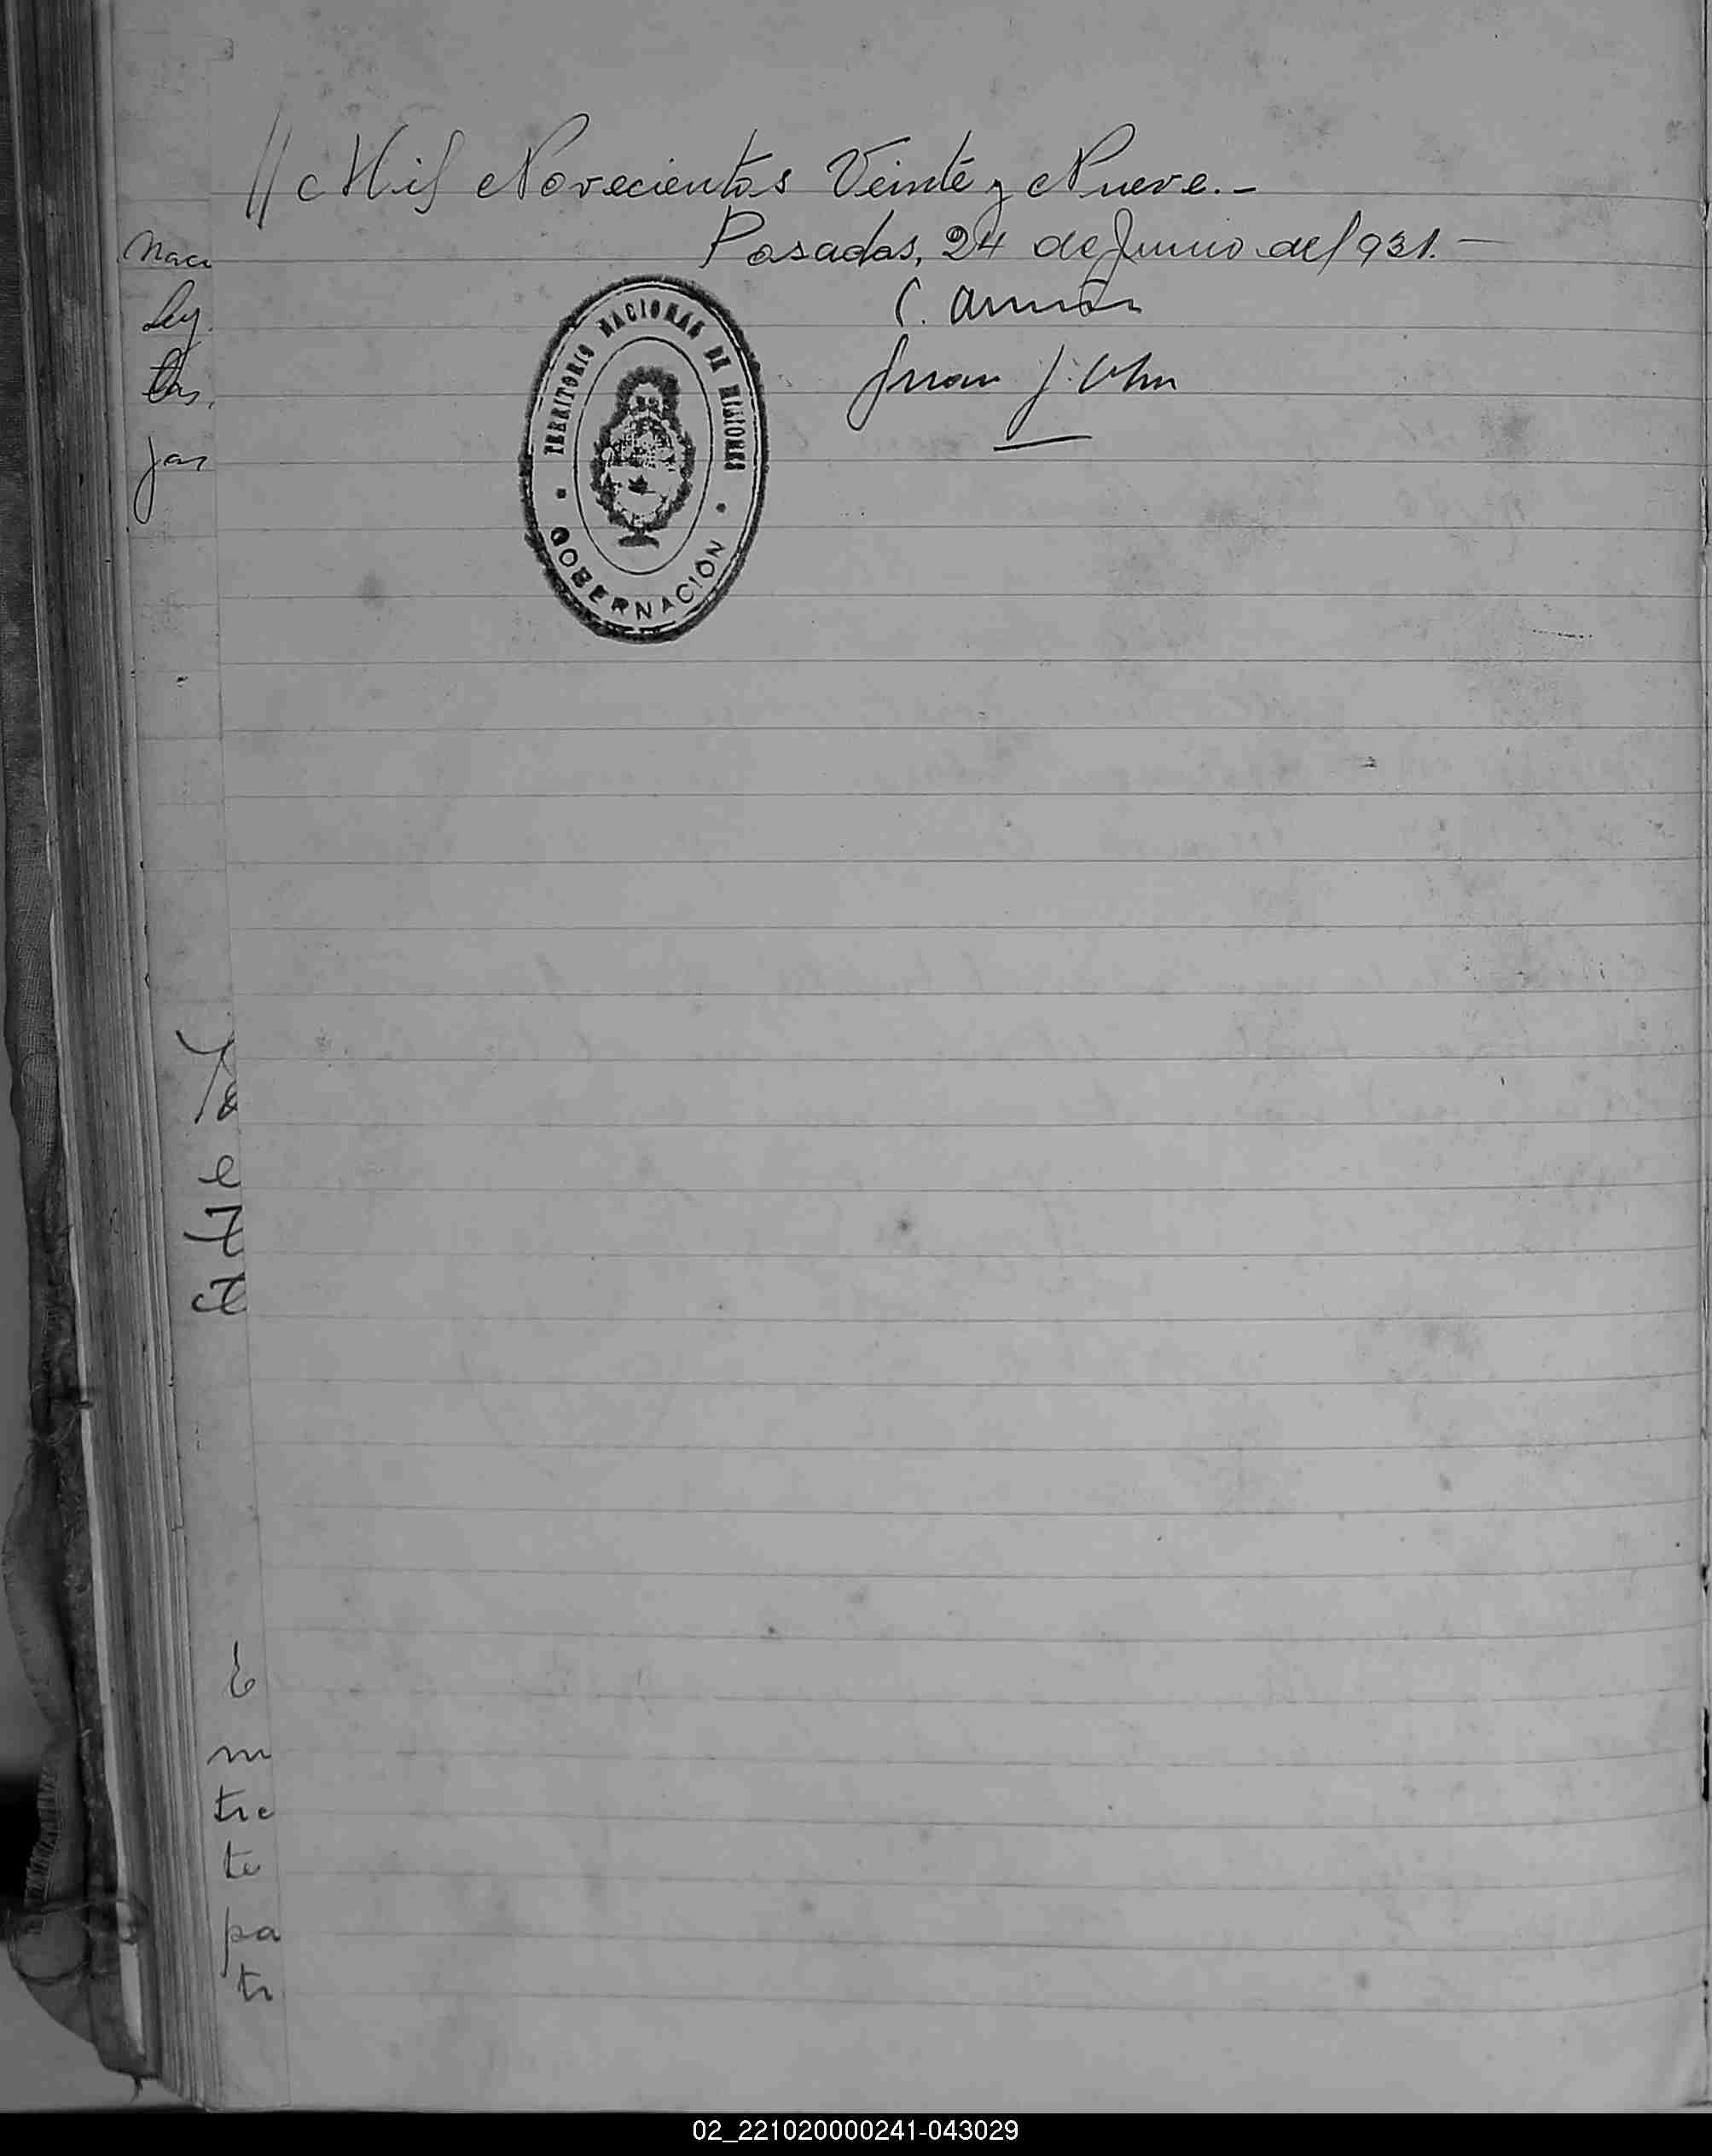 // Mil Novecientos Veinte y Nueve.-
Posadas, 24 de Junio del 931.-
C.
Juan J.
TERRITORIO NACIONAL DE MISIONES
GOBERNACIÓN
Naci
Ley.
tas,
jar
E
m
tre
te
pa
tr
02_221020000241-043029